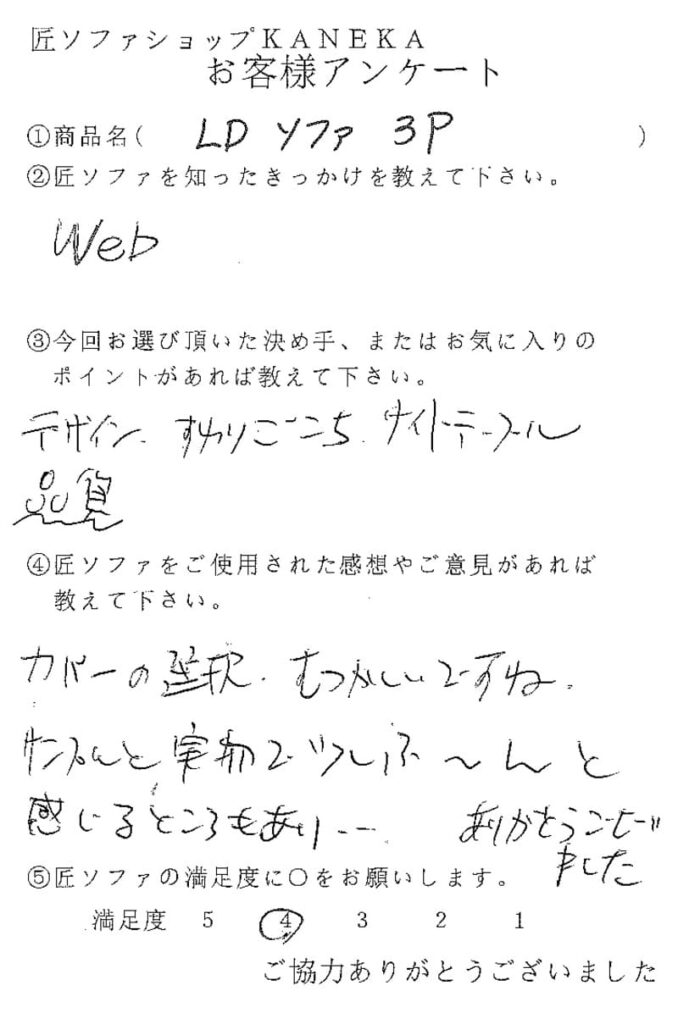 匠ソファショップKANEKA
お客様アンケート
①商品名( LD ソファ 3P )
②匠ソファを知ったきっかけを教えて下さい。
Web
③今回お選び頂いた決め手、またはお気に入りの
ポイントがあれば教えて下さい。
デザイン、すわりごこち、サイドテーブル
品質
④匠ソファをご使用された感想やご意見があれば
教えて下さい。
カバーの選択、むつかしいですね。
サンプルと実物で
感じるところもあり… ありがとうござい
ました
⑤匠ソファの満足度に○をお願いします。
満足度 5 4 3 2 1
ご協力ありがとうございました